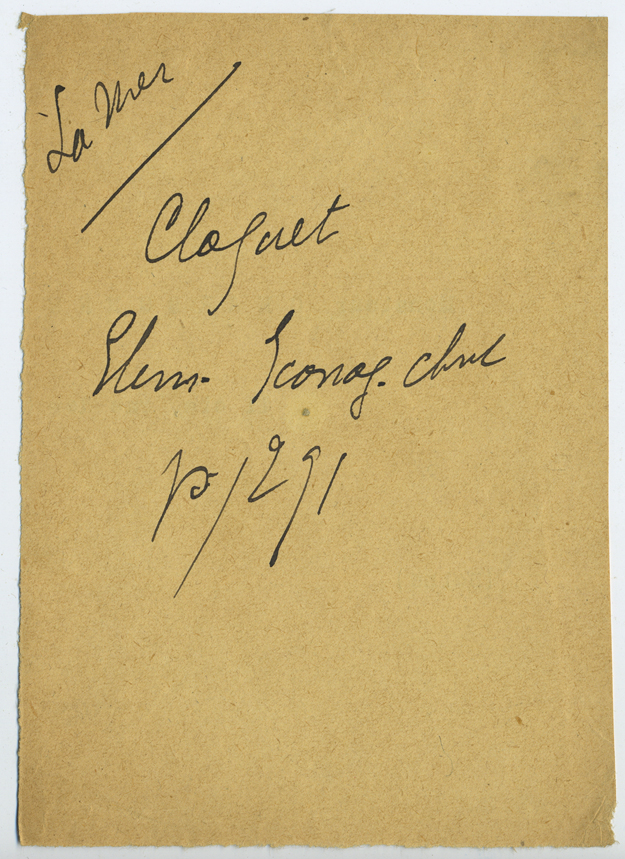 La Mer
Cloquet
Elem. Iconog. chret
p/291